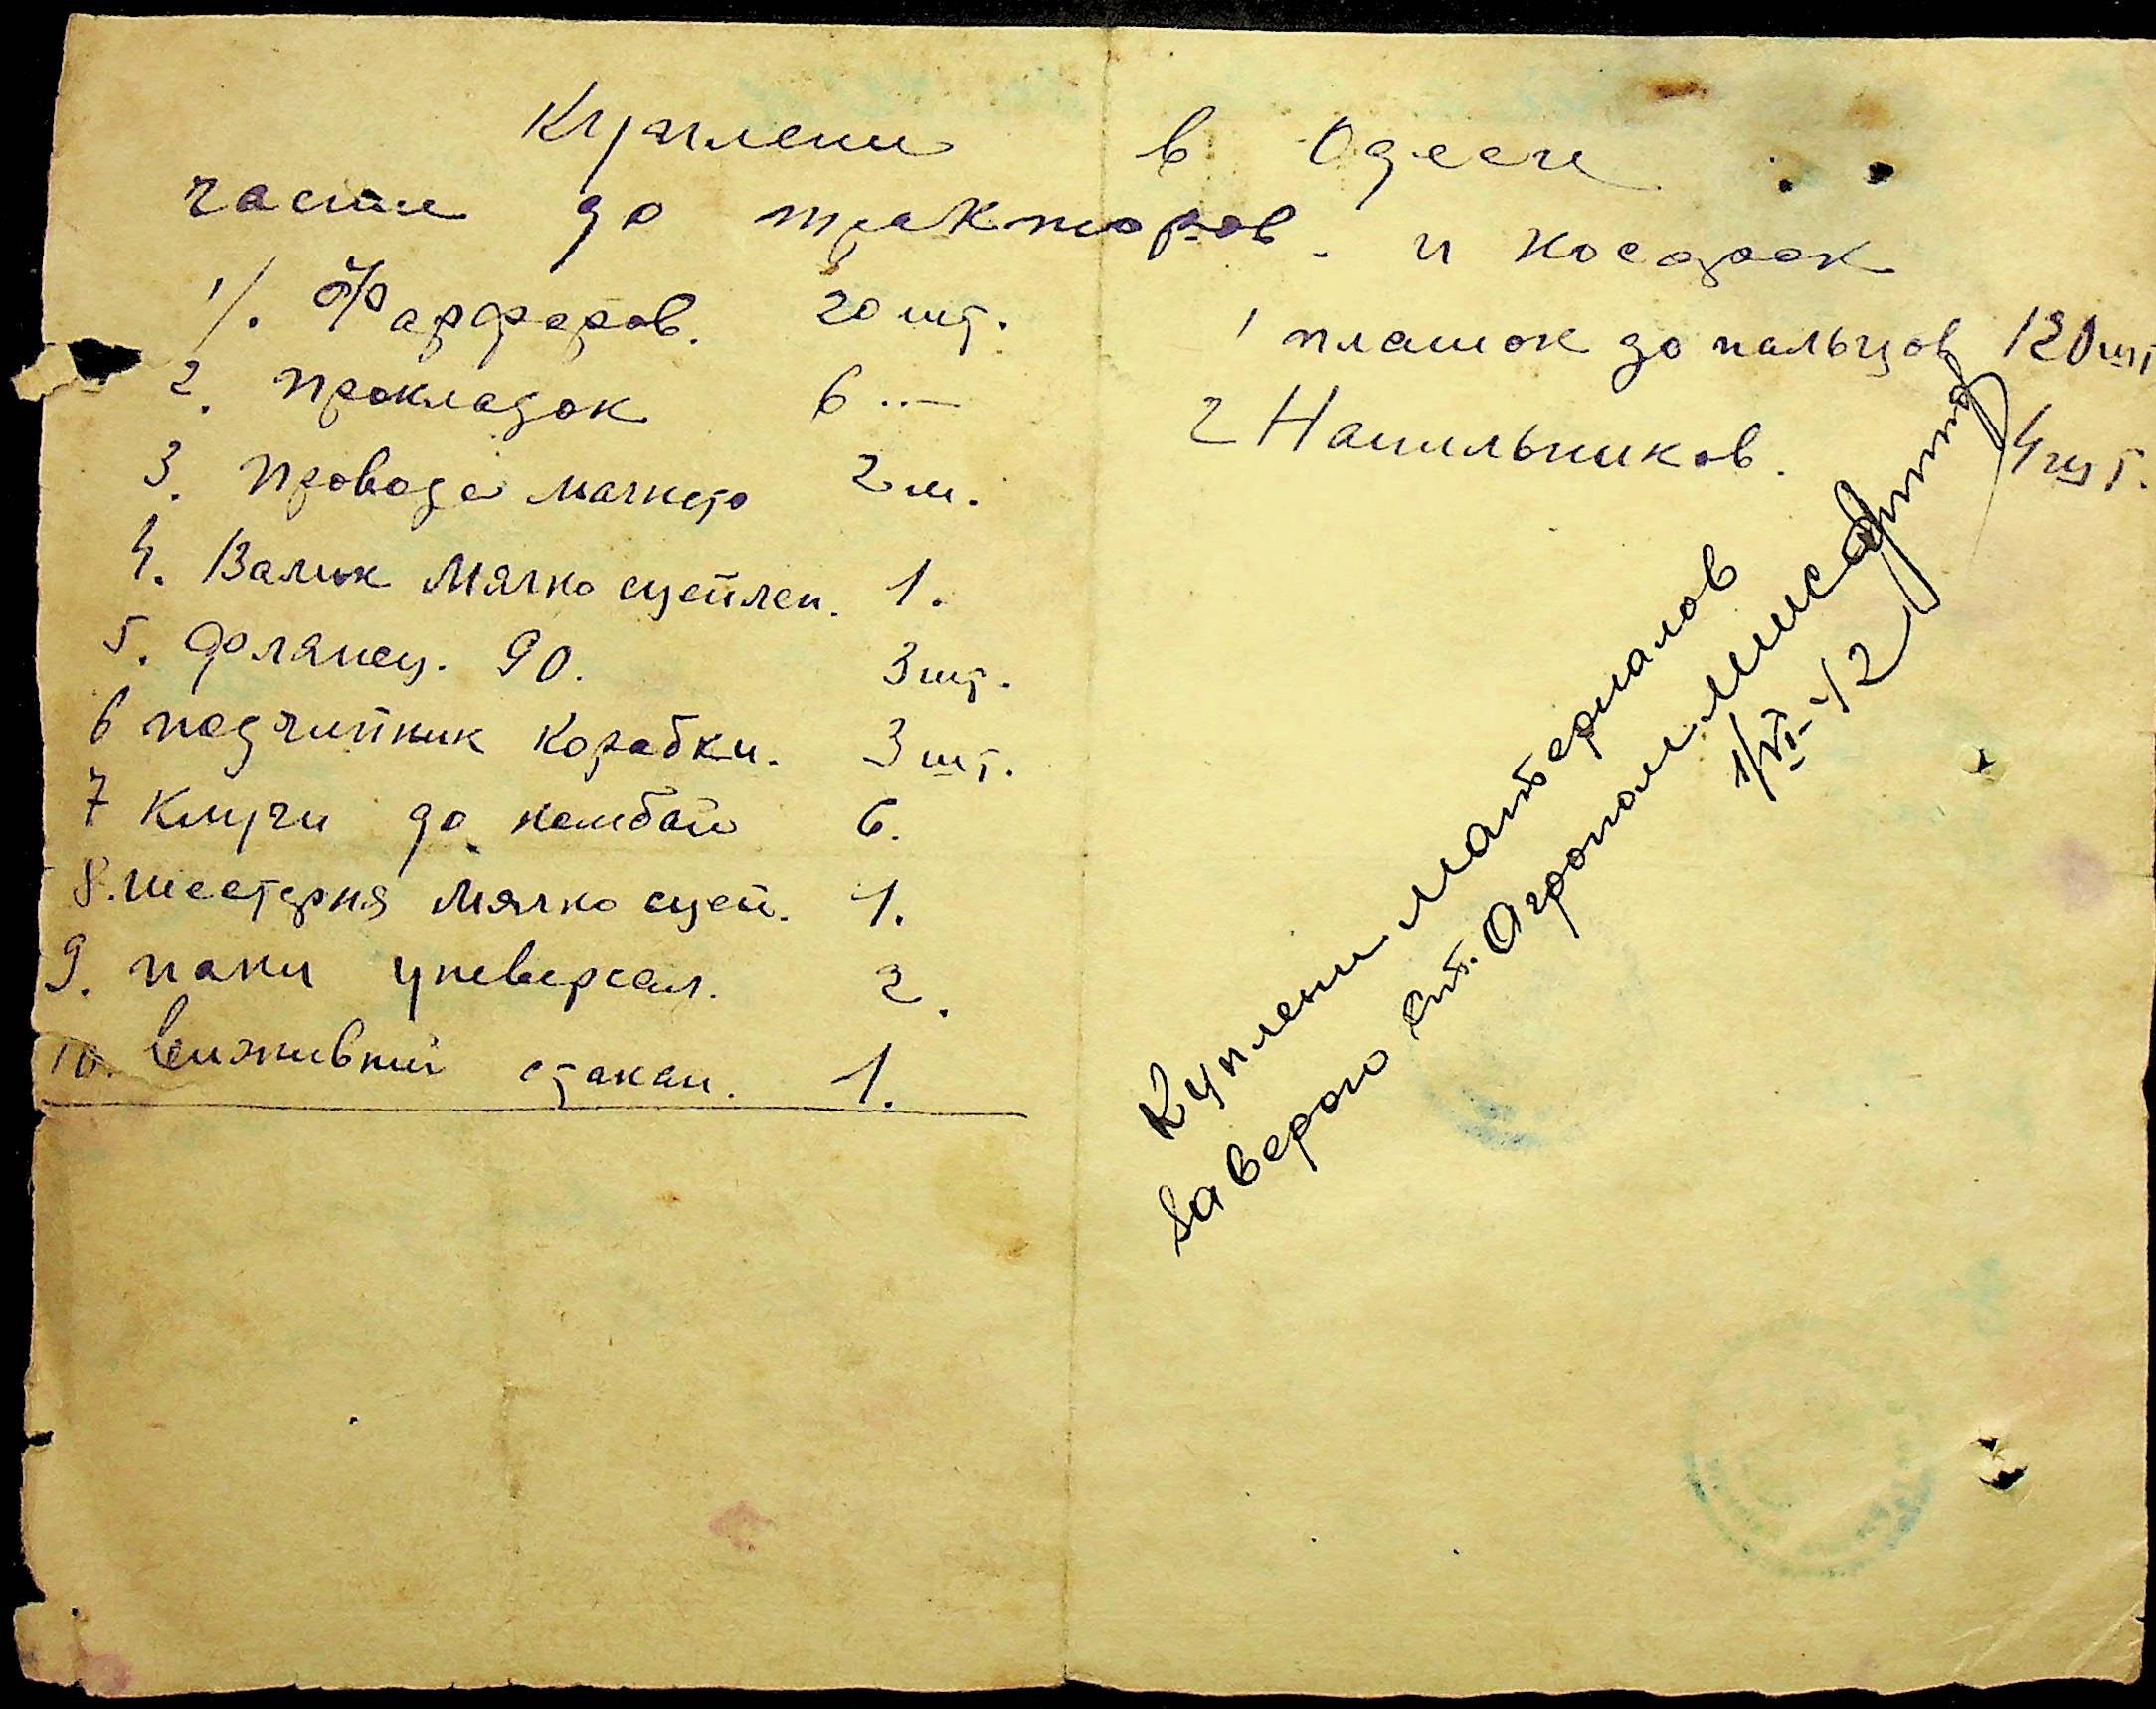 Куплени в Одеси
части до тракторов. и косарок
1/. Фарфоров. 20 шт.
2. прокладок 6 –"–
3. провода магнето 2 м.
4. Валик Мягко сцеплен. 1.
5. фланец. 90. 3 шт.
6 подчипник коробки. 3 шт.
7 Ключи до комбай 6.
8. шестерня мягко сцеп. 1.
9. паки универсал. 2.
10. стакан. 1.
1 плашок до пальцов 120 шт
2 Напильников. 4 шт.
Куплени материалов
Заверяю ст. Агроном
1/VI-42